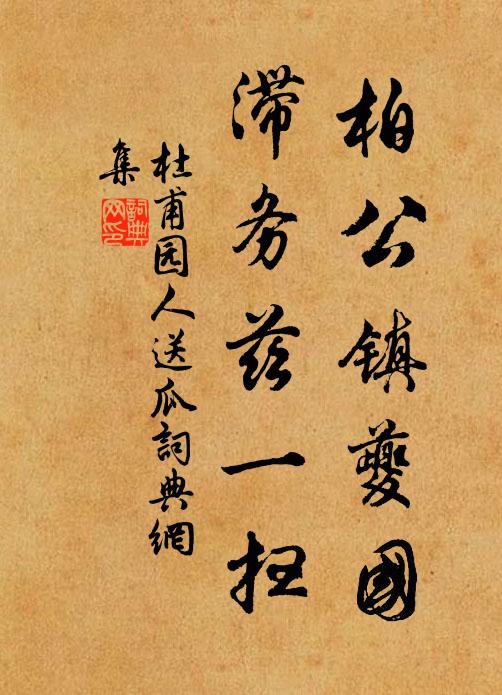 柏公镇夔國
滞务兹一扫
杜甫园人送瓜詞典網
集
詞典网印